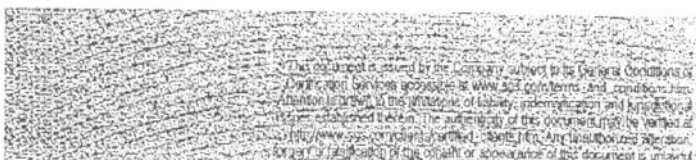 This document is issued by the Company subject to its General Conditions of
Certification Services accessible at www.sgs.com/terms_and_conditions.htm.
Attention is drawn to the limitations of liability, indemnification and jurisdictional
issues established therein. The authenticity of this document may be verified at
http://www.sgs.com/clients/certified_clients.htm. Any unauthorized alteration,
forgery or falsification of the content or appearance of this document is unlawful